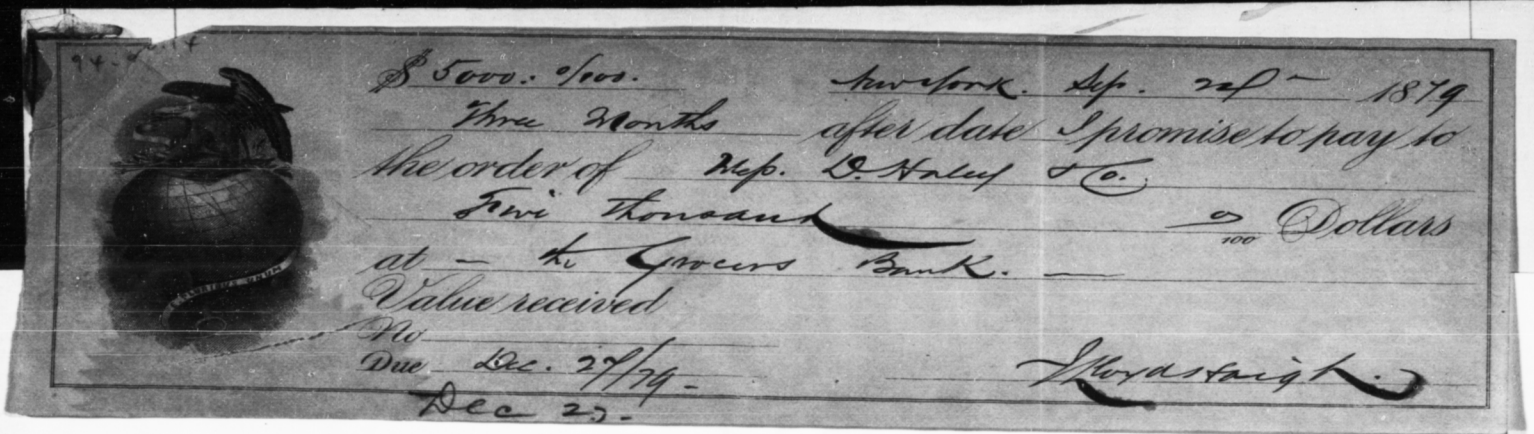 $ 5000. 0/100. New York. Sep. 24th 1879
Three Months after date I promise to pay to
the order of Mess. D. Haley & Co.
Five Thousand 0/100 Dollars
at - the Grocers Bank. -
E PLURIBUS UNUM
Value received
No
Due Dec. 27/79 -
J Lloyd Haigh.
Dec 27 -